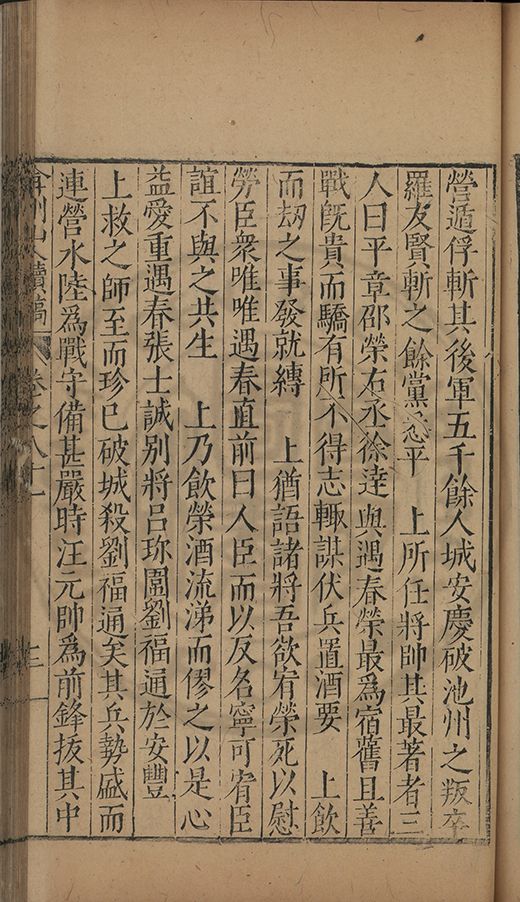 營遁俘斬其後軍五千餘人城安慶破池州之叛卒
羅友賢斬之餘黨悉平　上所任將帥其最著者三
人曰平章邵榮右丞徐逹與遇春榮最爲宿舊且善
戰旣貴而驕有所不得志輙謀伏兵置酒要　上飲
而刼之事發就縛　上猶語諸將吾欲宥榮死以慰
勞臣衆唯唯遇春直前曰人臣而以反名寧可宥臣
誼不與之共生　上乃飲榮酒流涕而僇之以是心
益愛重遇春張士誠別將呂珎圍劉福通於安豐
上救之師至而珍已破城殺劉福通矣其兵勢盛而
連營水陸爲戰守備甚嚴時汪元帥爲前鋒拔其中
弇州山人續稿 卷之八十一 十三